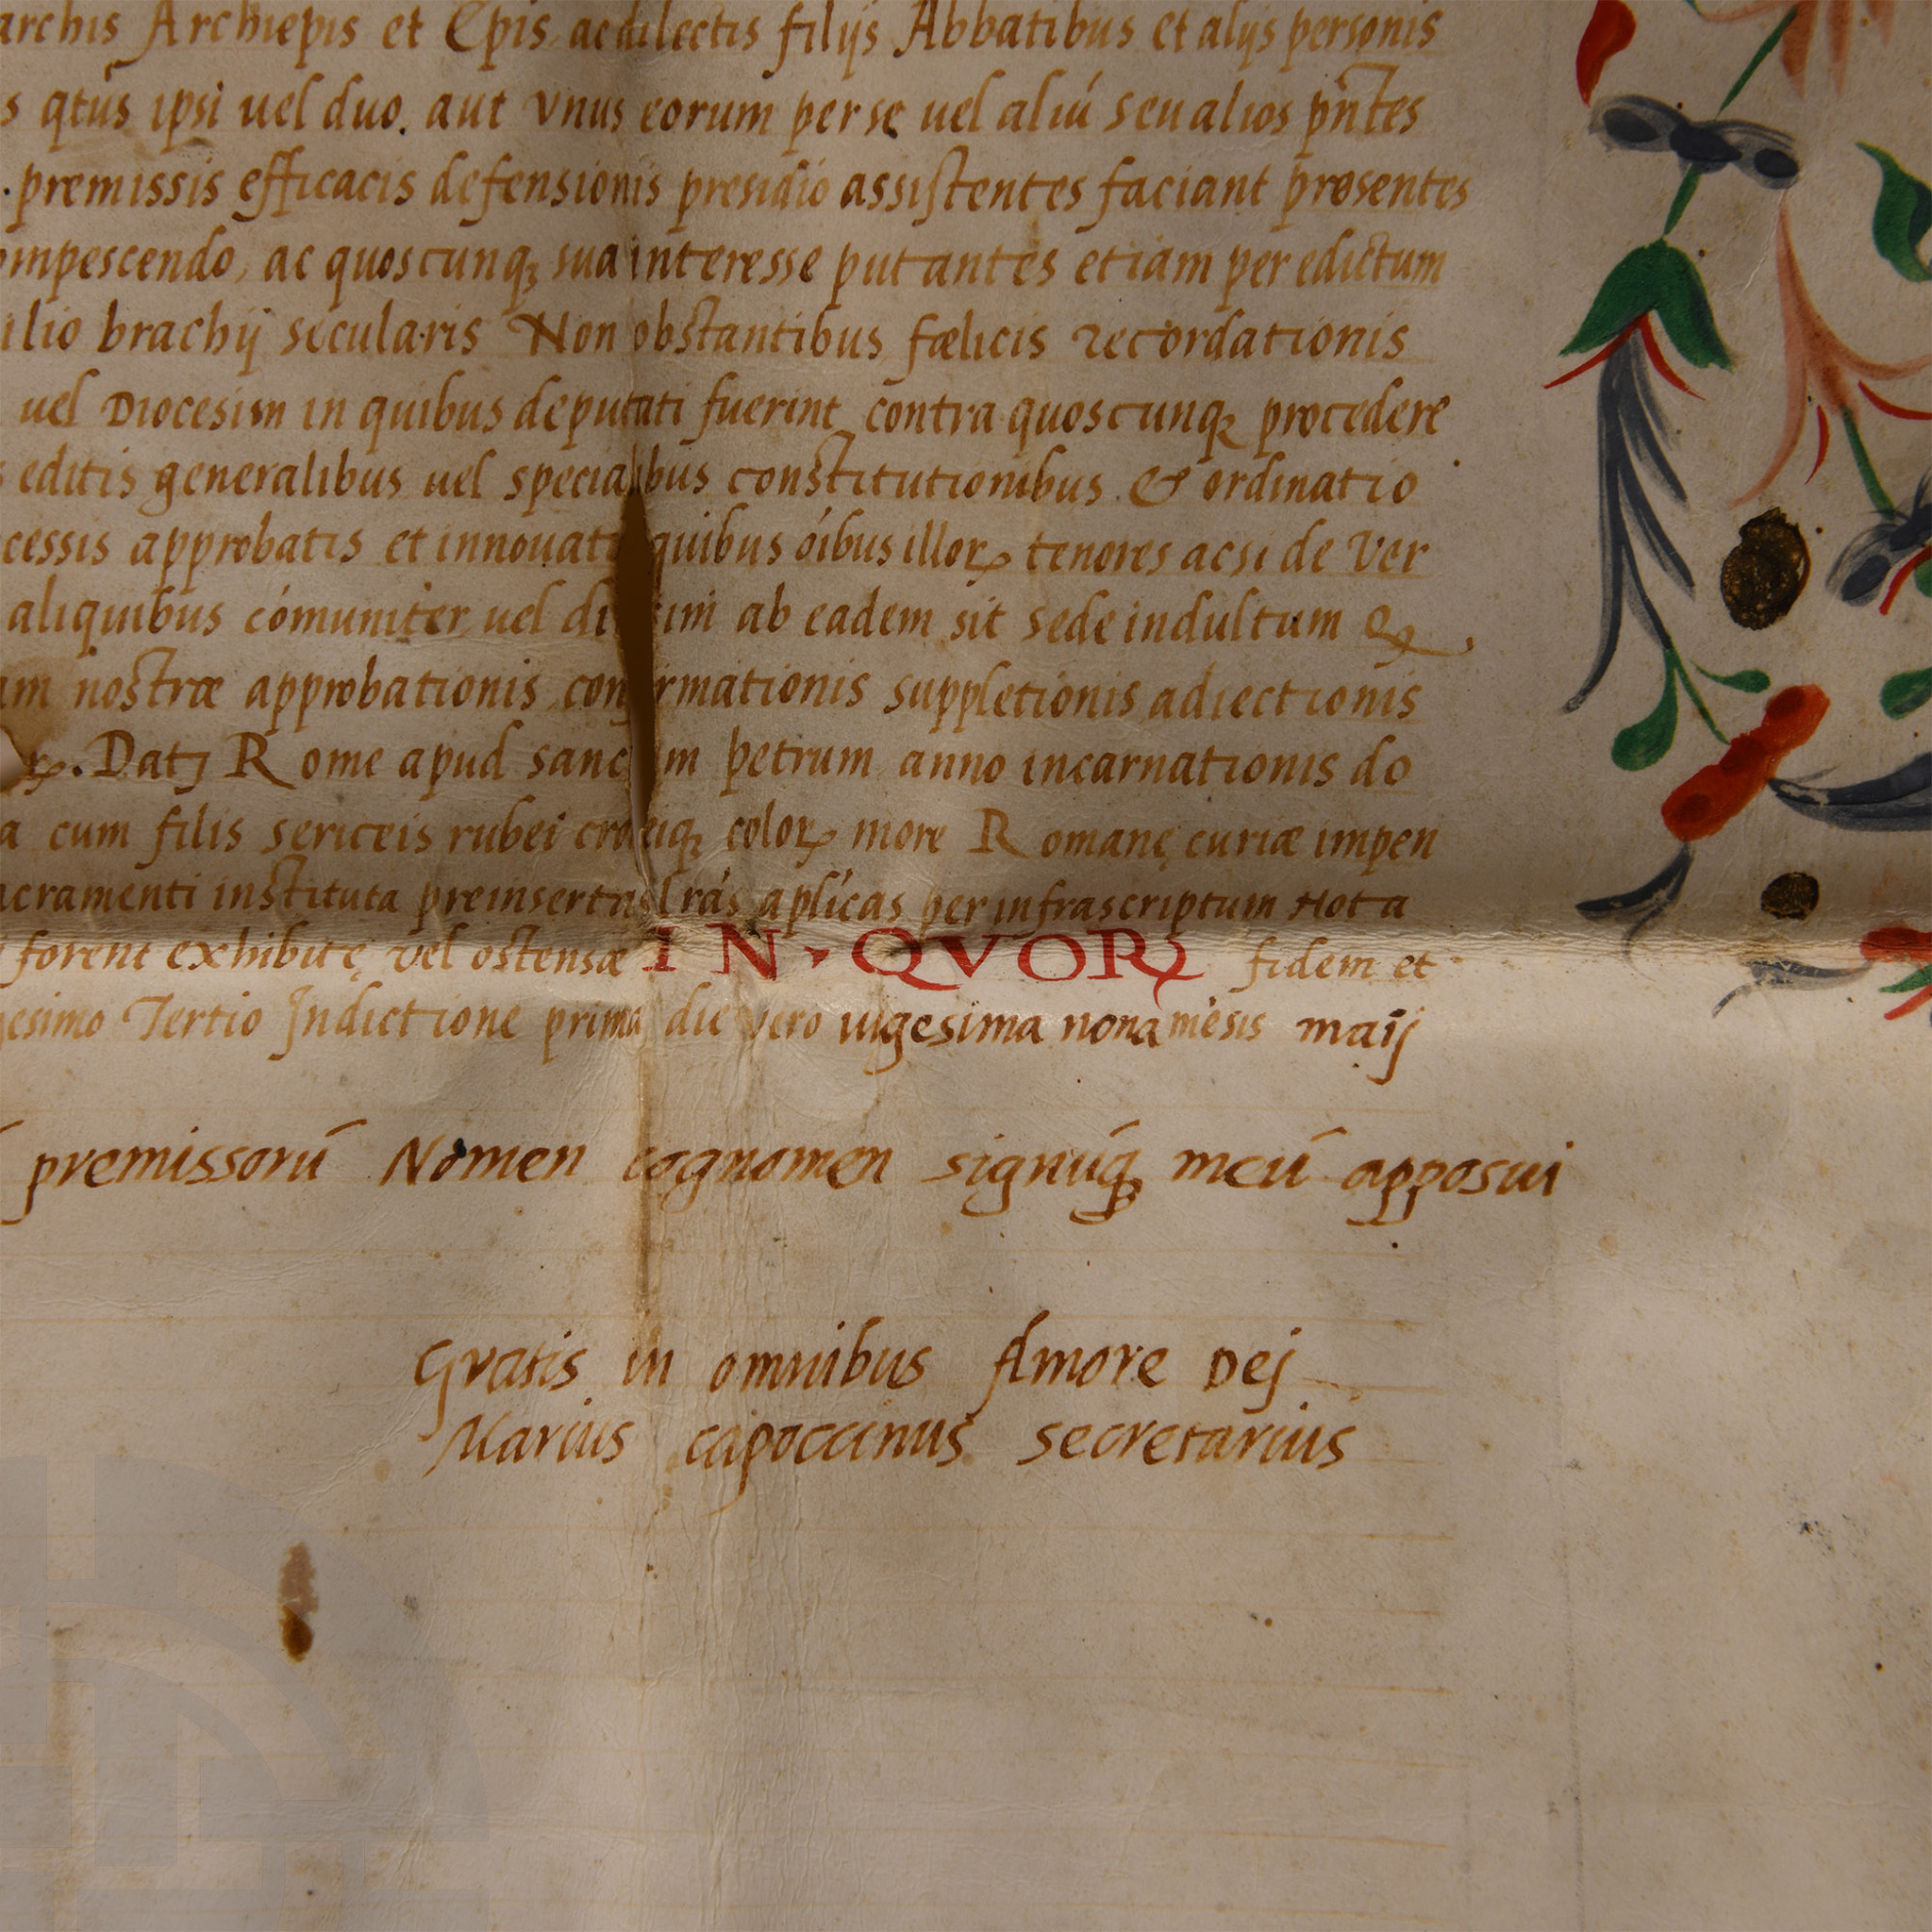 archis Archiepis et Epis ac dilectis filijs Abbatibus et alijs personis
s qtūs ipsi uel duo. aut vnus eorum per se uel aliū seu alios pn̄tes
premissis efficacis defensionis presidio assistentes faciant presentes
ompescendo, ac quoscunqꝫ sua interesse putantes etiam per edictum
ilio brachij secularis Non obstantibus fœlicis recordationis
uel Diocesim in quibus deputati fuerint contra quoscunqꝫ procedere
s editis generalibus uel specialibus constitutionibus & ordinatio
cessis approbatis et innouati quibus oībus illoꝝ tenores acsi de Ver
aliquibus cōmuniter uel di im ab eadem sit sede indultum
am nostræ approbationis con rmationis suppletionis adiectionis
ꝝ. Datꝫ Rome apud sanc m petrum anno incarnationis do
a cum filis sericeis rubei cro eiqꝫ coloꝝ more Romanę curiæ impen
acramenti instituta preinsertas lrās aplīcas per infrascriptum Nota
forent exhibitę vel ostensæ IN QVOꝜ fidem et
gesimo Tertio Indictione prima die vero uigesima nona mēsis maij
premissorū Nomen cognomen signūqꝫ meū apposui
Gratis in omnibus Amore Dej
Marius capoccinus secretarius